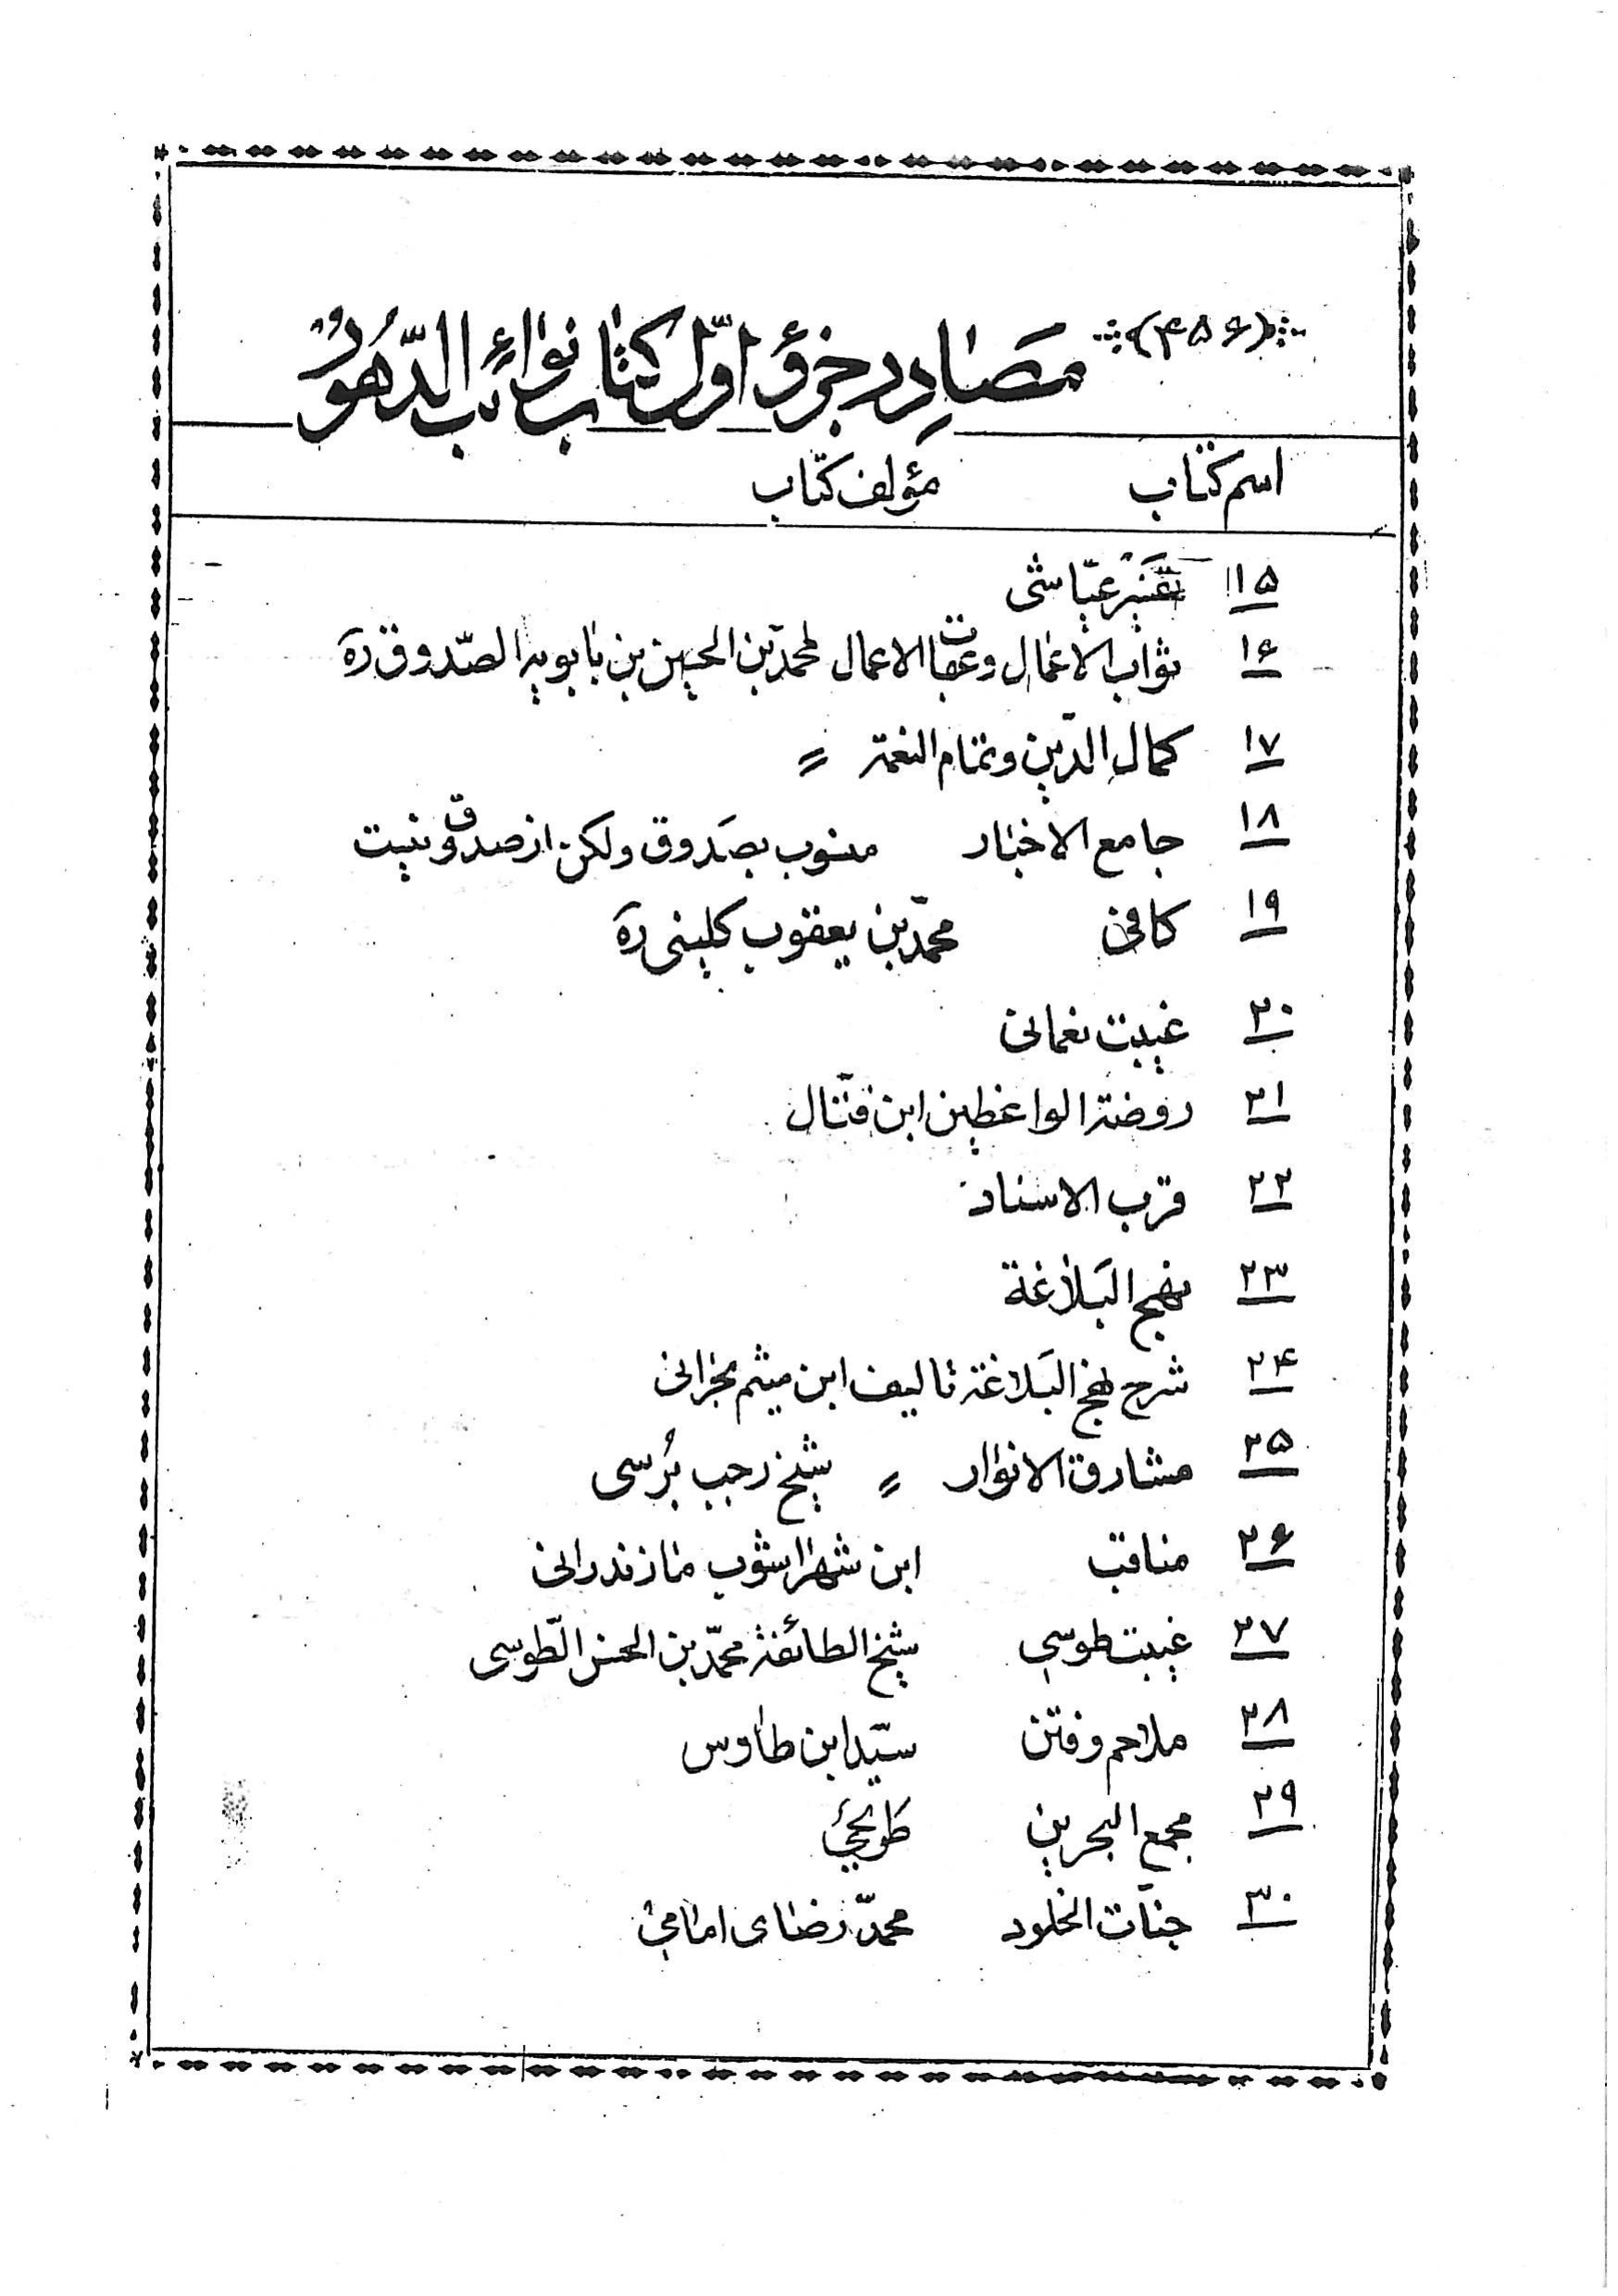 (۴۵۶)
مَصَادِر جزؤ اوّل كتاب نوائب الدّهُور
اسم كتاب مؤلف كتاب
۱۵ تفسير عيّاشى
۱۶ ثواب الاعمال وعقاب الاعمال لمحمّد بن الحسين بن بابويه الصّدوق ره
۱۷ كمال الدّين وتمام النعمة 〃
۱۸ جامع الاخبار منسوب بصَدوق ولكن از صدوق نيست
۱۹ كافى محمّد بن يعقوب كلينى ره
۲۰ غيبت نعمانى
۲۱ روضة الواعظين ابن فتّال
۲۲ قرب الاسناد
۲۳ نهج البَلاغة
۲۴ شرح نهج البَلاغة تاليف ابن ميثم بحرانى
۲۵ مشارق الانوار 〃 شيخ رجب بُرسى
۲۶ مناقب ابن شهراشوب مازندرانى
۲۷ غيبت طوسى شيخ الطائفة محمّد بن الحسن الطّوسى
۲۸ ملاحم وفتن سيّد ابن طاوس
۲۹ مجمع البحرين طريحى
۳۰ جنّات الخلود محمّد رضاى امامى